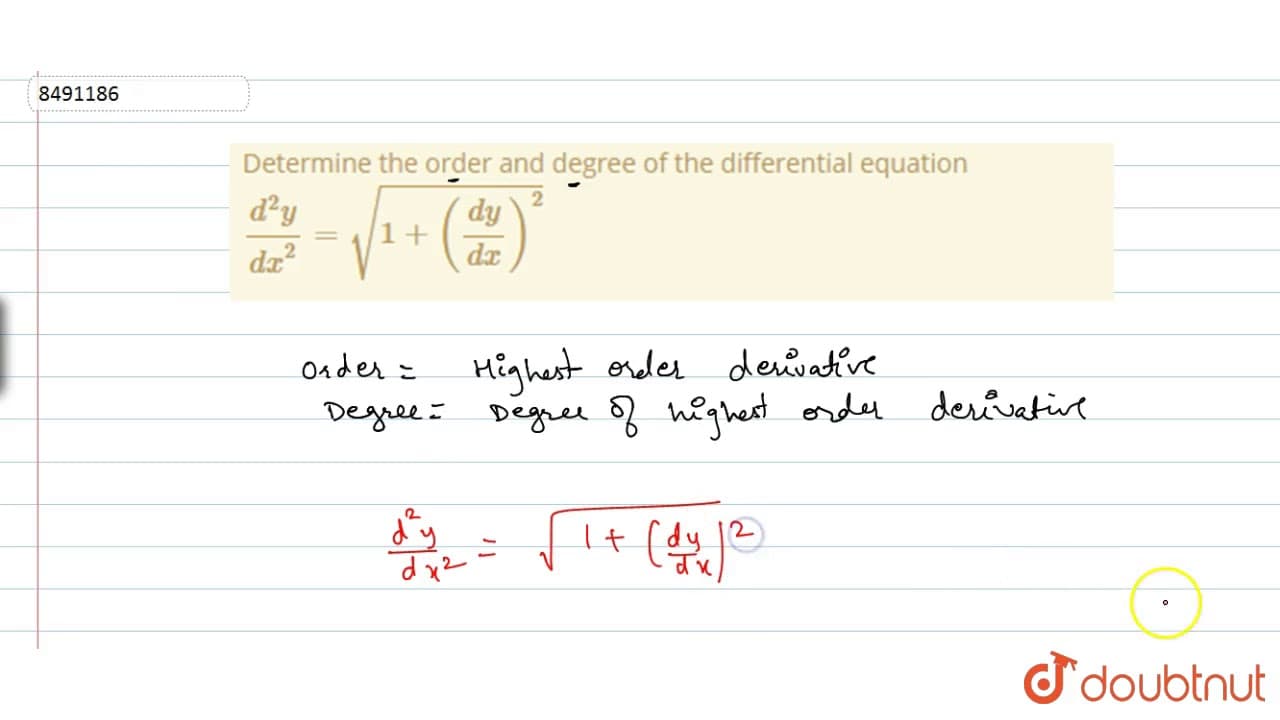 8491186
Determine the order and degree of the differential equation
d²y/dx² = √(1 + (dy/dx)²)
Order = Highest order derivative
Degree = Degree of highest order derivative
d²y/dx² = √(1 + (dy/dx)²)
doubtnut